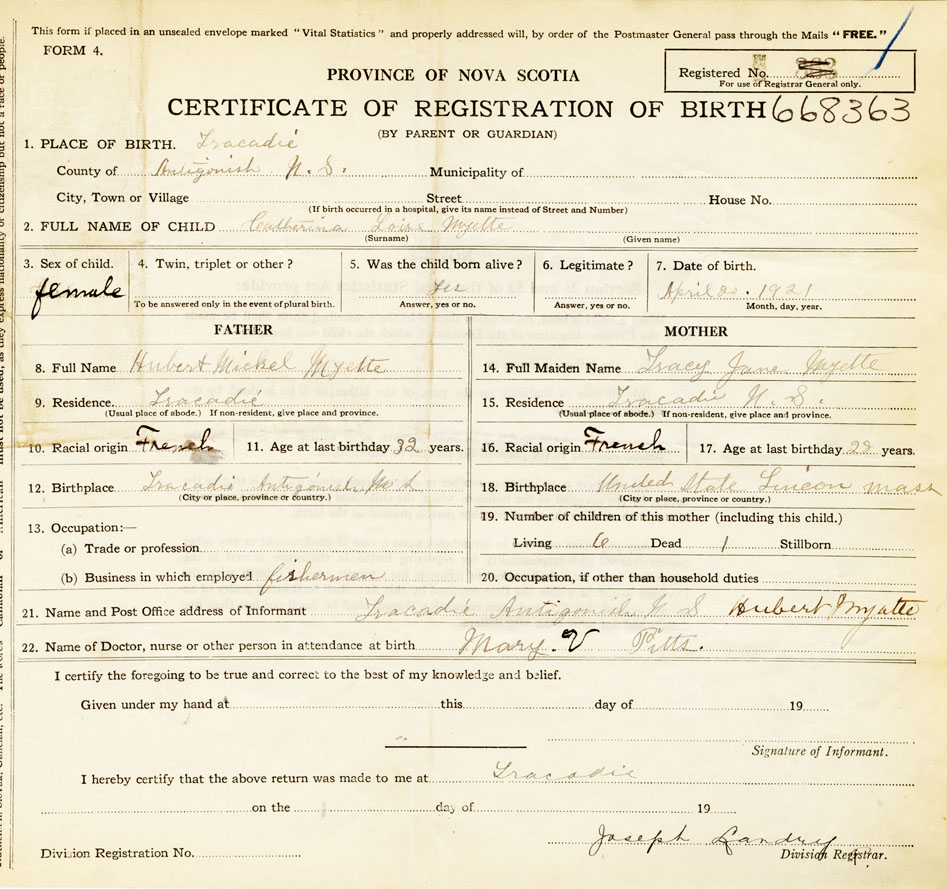 This form if placed in an unsealed envelope marked "Vital Statistics" and properly addressed will, by order of the Postmaster General pass through the Mails "FREE."
FORM 4.
PROVINCE OF NOVA SCOTIA
Registered No.
For use of Registrar General only.
CERTIFICATE OF REGISTRATION OF BIRTH 668363
(BY PARENT OR GUARDIAN)
1. PLACE OF BIRTH. Tracadié
County of Antigonish N. S. Municipality of
City, Town or Village Street House No.
(If birth occurred in a hospital, give its name instead of Street and Number)
2. FULL NAME OF CHILD Catherina Loise Myette
(Surname) (Given name)
3. Sex of child. 4. Twin, triplet or other? 5. Was the child born alive? 6. Legitimate? 7. Date of birth.
female yes April 20. 1921
To be answered only in the event of plural birth. Answer, yes or no. Answer, yes or no. Month, day, year.
FATHER MOTHER
8. Full Name Hubert Mickel Myette 14. Full Maiden Name Tracy Jane Myette
9. Residence. Tracadié 15. Residence Tracadie N. S.
(Usual place of abode.) If non-resident, give place and province. (Usual place of abode.) If non-resident, give place and province.
10. Racial origin French 11. Age at last birthday 32 years. 16. Racial origin French 17. Age at last birthday years.
12. Birthplace Tracadié Antigonish N S 18. Birthplace United State Lincon mass
(City or place, province or country.) (City or place, province or country.)
13. Occupation:— 19. Number of children of this mother (including this child.)
(a) Trade or profession Living 6 Dead 1 Stillborn
(b) Business in which employed fishermen 20. Occupation, if other than household duties
21. Name and Post Office address of Informant Tracadié Antigonish N S Hubert Myatte
22. Name of Doctor, nurse or other person in attendance at birth Mary. V Pitts.
I certify the foregoing to be true and correct to the best of my knowledge and belief.
Given under my hand at this day of 19
Signature of Informant.
I hereby certify that the above return was made to me at Tracadie
on the day of 19
Joseph Landry
Division Registration No. Division Registrar.